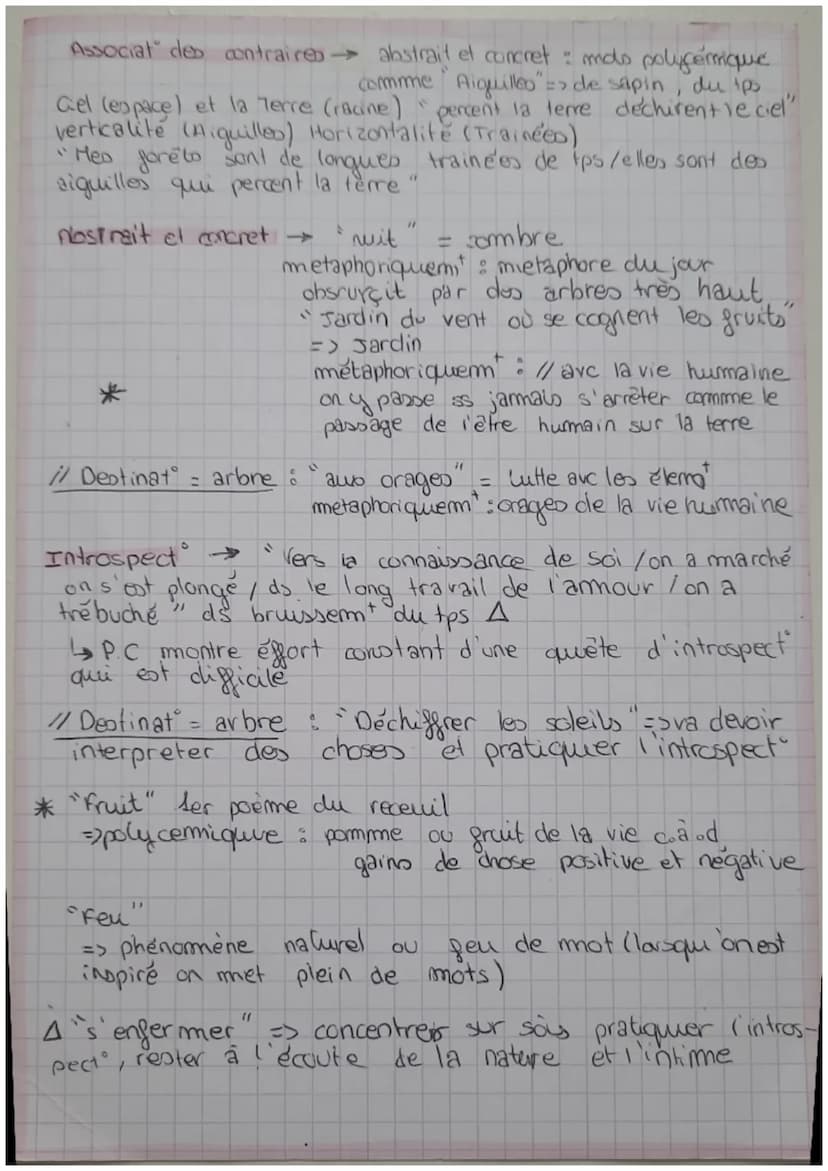 Associat° des contraires → abstrait et concret : mots polysémique
comme "Aiguilles" => de sapin, du tps
Ciel (espace) et la Terre (racine) "percent la terre déchirent le ciel"
verticalité (Aiguilles) Horizontalité (Trainées)
"Mes forêts sont de longues trainées de tps/elles sont des
aiguilles qui percent la terre"
Abstrait et concret → "nuit" = sombre
metaphoriquemt : metaphore du jour
obscurçit par des arbres très haut
"Jardin du vent où se cognent les fruits"
=> Jardin
métaphoriquemt : // avc la vie humaine
* on y passe ss jamais s'arrêter comme le
passage de l'être humain sur la terre
// Destinat° = arbre : "aux orages" = Lutte avc les élemt
metaphoriquemt : orages de la vie humaine
Introspect° → "Vers la connaissance de soi /on a marché
on s'est plongé / ds le long travail de l'amour / on a
trébuché" ds bruissemt du tps Δ
↳ P.C montre éffort constant d'une quête d'introspect°
qui est difficile
// Destinat° = arbre : "Déchiffrer les soleils" => va devoir
interpreter des choses et pratiquer l'introspect°
* "Fruit" 1er poème du receuil
=> polycemique : pomme ou fruit de la vie c.à.d
gains de chose positive et négative
"Feu"
=> phénomène naturel ou feu de mot (lorsqu'on est
inspiré on met plein de mots)
Δ "s'enfermer" => concentrer sur sois pratiquer l'intros-
pect°, rester à l'écoute de la nature et l'intime